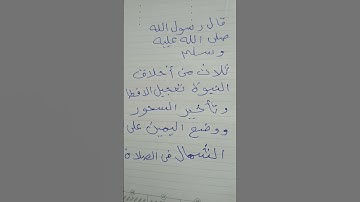 قال رسول الله
صلى الله عليه
وسلم
ثلاث من أخلاق
النبوة تعجيل الافطار
وتأخير السحور
ووضع اليمين على
الشمال فى الصلاة